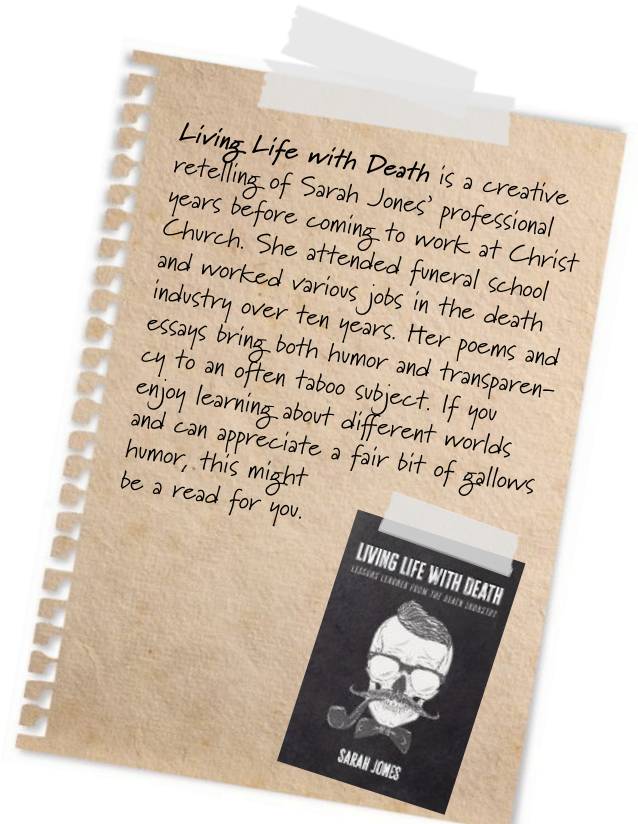 Living Life with Death is a creative
retelling of Sarah Jones' professional
years before coming to work at Christ
Church. She attended funeral school
and worked various jobs in the death
industry over ten years. Her poems and
essays bring both humor and transparen-
cy to an often taboo subject. If you
enjoy learning about different worlds
and can appreciate a fair bit of gallows
humor, this might
be a read for you.
LIVING LIFE WITH DEATH
LESSONS LEARNED FROM THE DEATH INDUSTRY
SARAH JONES